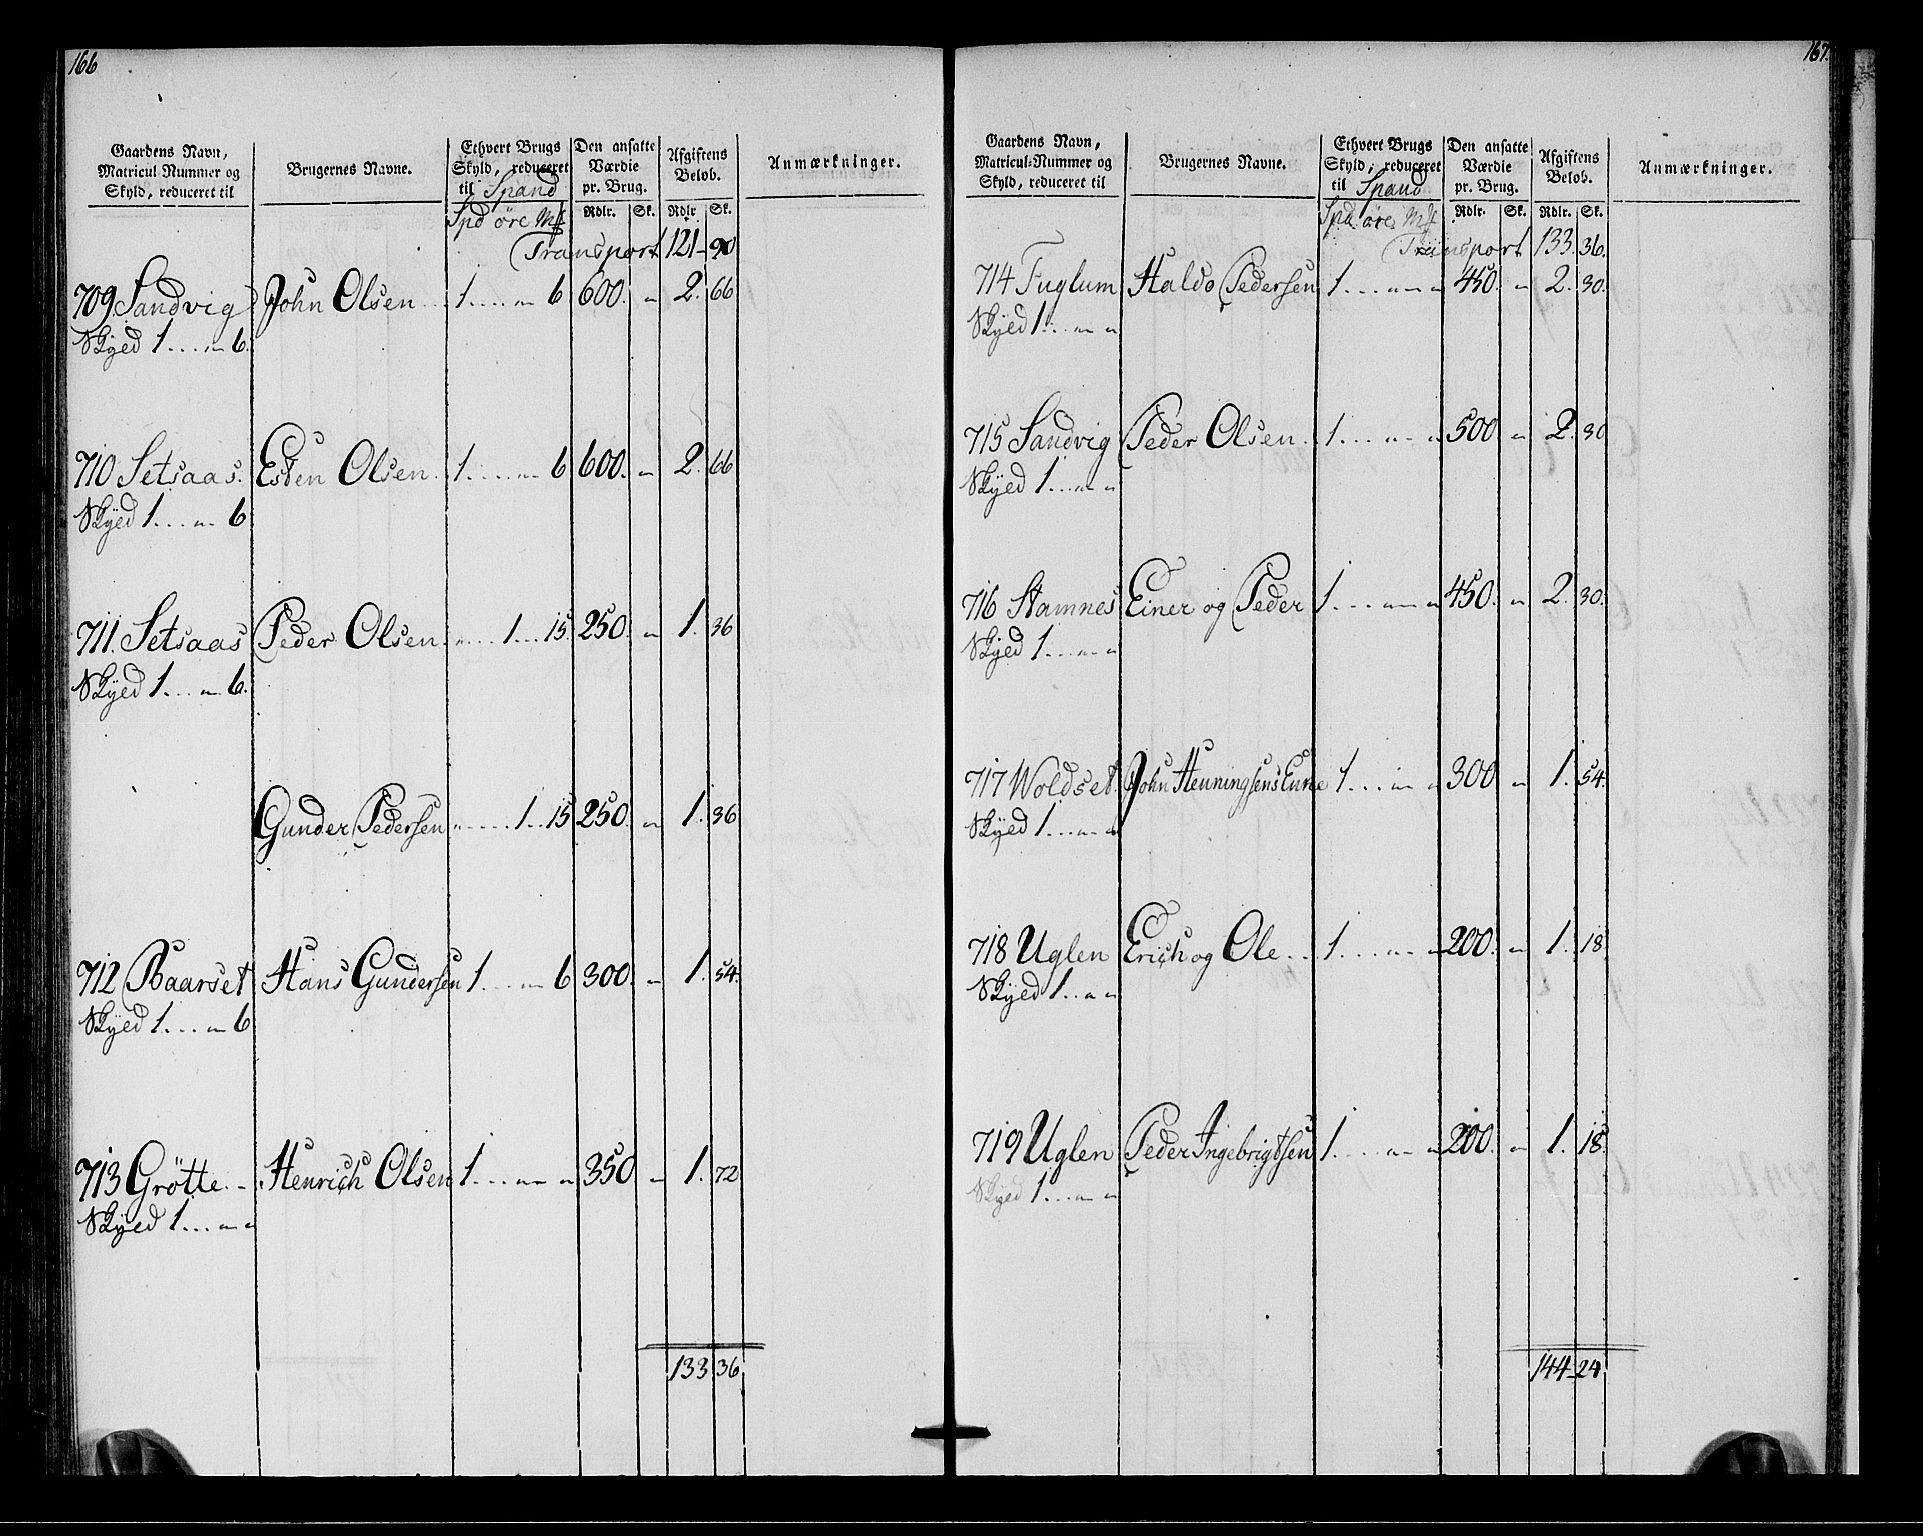 166
Gaardens Navn, Matricul Nummer og Skyld, reduceret til | Brugernes Navne. | Ethvert Brugs Skyld, reduceret til Spand | Den ansatte Værdie pr. Brug. | Afgiftens Beløb. | Anmærkninger.
Spd øre Mk | Rdlr. | Sk. | Rdlr | Sk.
Transport 121 - 90
709 Sandvig John Olsen 1....„ 6 600. „ 2. 66
Skyed 1....„ 6.
710 Setsaas. Esten Olsen. 1.....„ 6 600. „ 2. 66
Skyed 1....„ 6
711. Setsaas Peder Olsen. „.... 1... 15. 250. „ 1. 36
Skyed 1....„ 6.
Gunder Pedersen „..... 1... 15 250. „ 1. 36
712 Baarset Hans Gundersen 1....„ 6 300. „ 1. 54.
Skyed 1....„ 6
713 Grötte.- Henrich Olsen 1....„ „ 350 „ 1. 72
Skyed 1....„ „
133 36
167.
Gaardens Navn, Matricul-Nummer og Skyld, reduceret til | Brugernes Navne. | Ethvert Brugs Skyld, reduceret til Spand | Den ansatte Værdie pr. Brug. | Afgiftens Beløb. | Anmærkninger.
Spd. øre. Mk | Rdlr. | Sk. | Rdlr. | Sk.
Transport 133. 36.
714 Fuglum Haldo Pedersen 1....„ „ 450. „ 2. 30.
Skyed 1...„ „
715 Sandvig Peder Olsen. 1....„ „ 500 „ 2. 30
Skyed 1...„ „
716 Stamnes Einer og Peder 1....„ „ 450. „ 2. 30.
Skyed 1....„ „
717 Woldset. John Henningsens Enne 1....„ „ 300 „ 1. 54.
Skyed 1....„ „
718 Uglen Erich og Ole.. 1....„ „ 200. „ 1. 18
Skyed 1...„ „
719 Uglen Peder Ingebrigtsen 1....„ „ 200. „ 1. 18.
Skyed 1....„ „
144 - 24